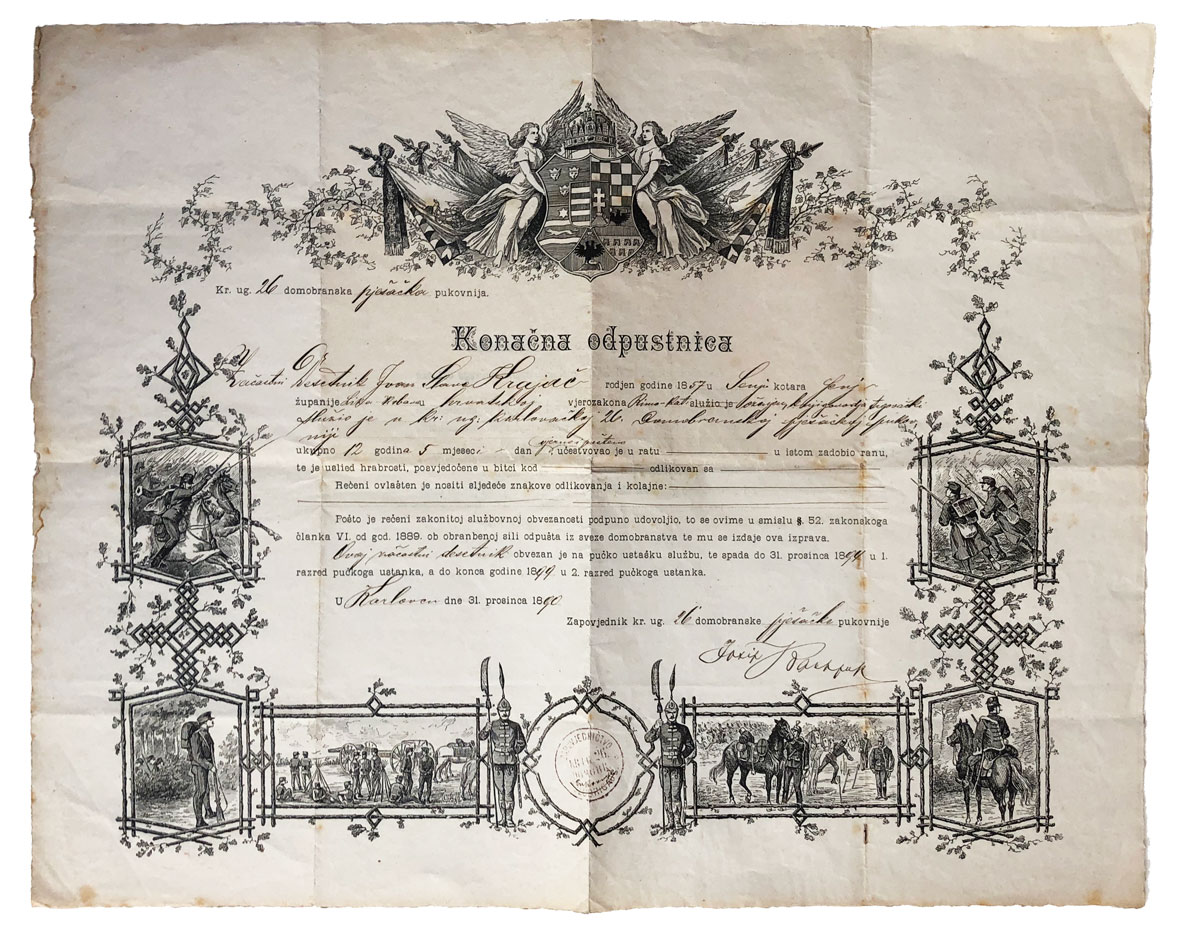 Kr. ug. 26 domobranska pješačka pukovnija.
Konačna odpustnica
Načastni Desetnik Ivan Krajač rodjen godine 1857 u Senju kotara Senj
županije Lika Krbava u Hrvatskoj vjerozakona Rimo-kat. služio je
služio je u kr. ug. karlovačkoj 26. Domobranskoj pješačkoj pukov-
niji
ukupno 12 godina 5 mjeseci - dan učestvovao je u ratu u istom zadobio ranu,
te je usljed hrabrosti, posvjedočene u bitci kod odlikovan sa
Rečeni ovlašten je nositi sljedeće znakove odlikovanja i kolajne:
Pošto je rečeni zakonitoj službovnoj obvezanosti podpuno udovoljio, to se ovime u smislu §. 52. zakonskoga
članka VI. od god. 1889. ob obranbenoj sili odpušta iz sveze domobranstva te mu se izdaje ova izprava.
Ovaj načastni desetnik obvezan je na pučko ustašku službu, te spada do 31. prosinca 1894 u 1.
razred pučkoga ustanka, a do konca godine 1899 u 2. razred pučkoga ustanka.
U Karlovcu dne 31. prosinca 1890
Zapovjednik kr. ug. 26 domobranske pješačke pukovnije
Josip